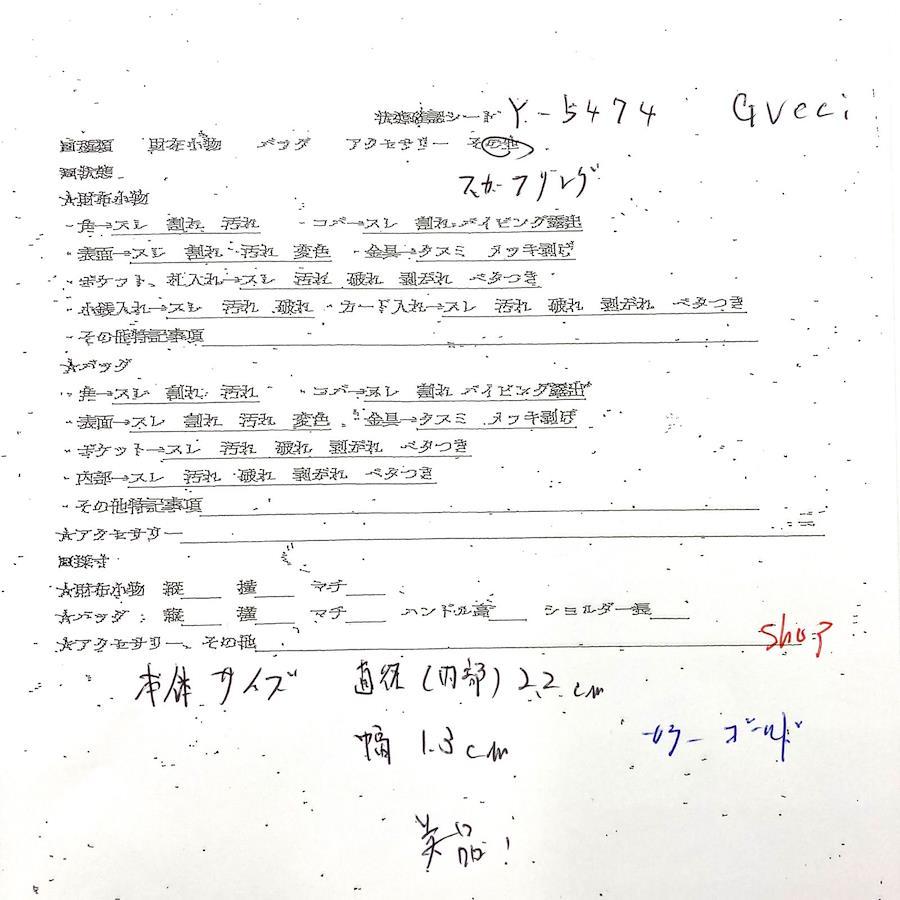 状態確認シート Y-5474 Gucci
□種類 財布小物 バッグ アクセサリー その他
スカーフリング
□状態
☆財布小物
・角→スレ 割れ 汚れ ・コバ→スレ 割れ パイピング露出
・表面→スレ 割れ 汚れ 変色 ・金具→クスミ メッキ剥げ
・ポケット、札入れ→スレ 汚れ 破れ 剥がれ ベタつき
・小銭入れ→スレ 汚れ 破れ ・カード入れ→スレ 汚れ 破れ 剥がれ ベタつき
・その他特記事項
☆バッグ
・角→スレ 割れ 汚れ ・コバ→スレ 割れ パイピング露出
・表面→スレ 割れ 汚れ 変色 ・金具→クスミ メッキ剥げ
・ポケット→スレ 汚れ 破れ 剥がれ ベタつき
・内部→スレ 汚れ 破れ 剥がれ ベタつき
・その他特記事項
☆アクセサリー
□採寸
☆財布小物 縦 横 マチ
☆バッグ：縦 横 マチ ハンドル高 ショルダー長
☆アクセサリー、その他
Shop
本体サイズ 直径(内部) 2.2cm
幅 1.3cm
カラー ゴールド
美品!